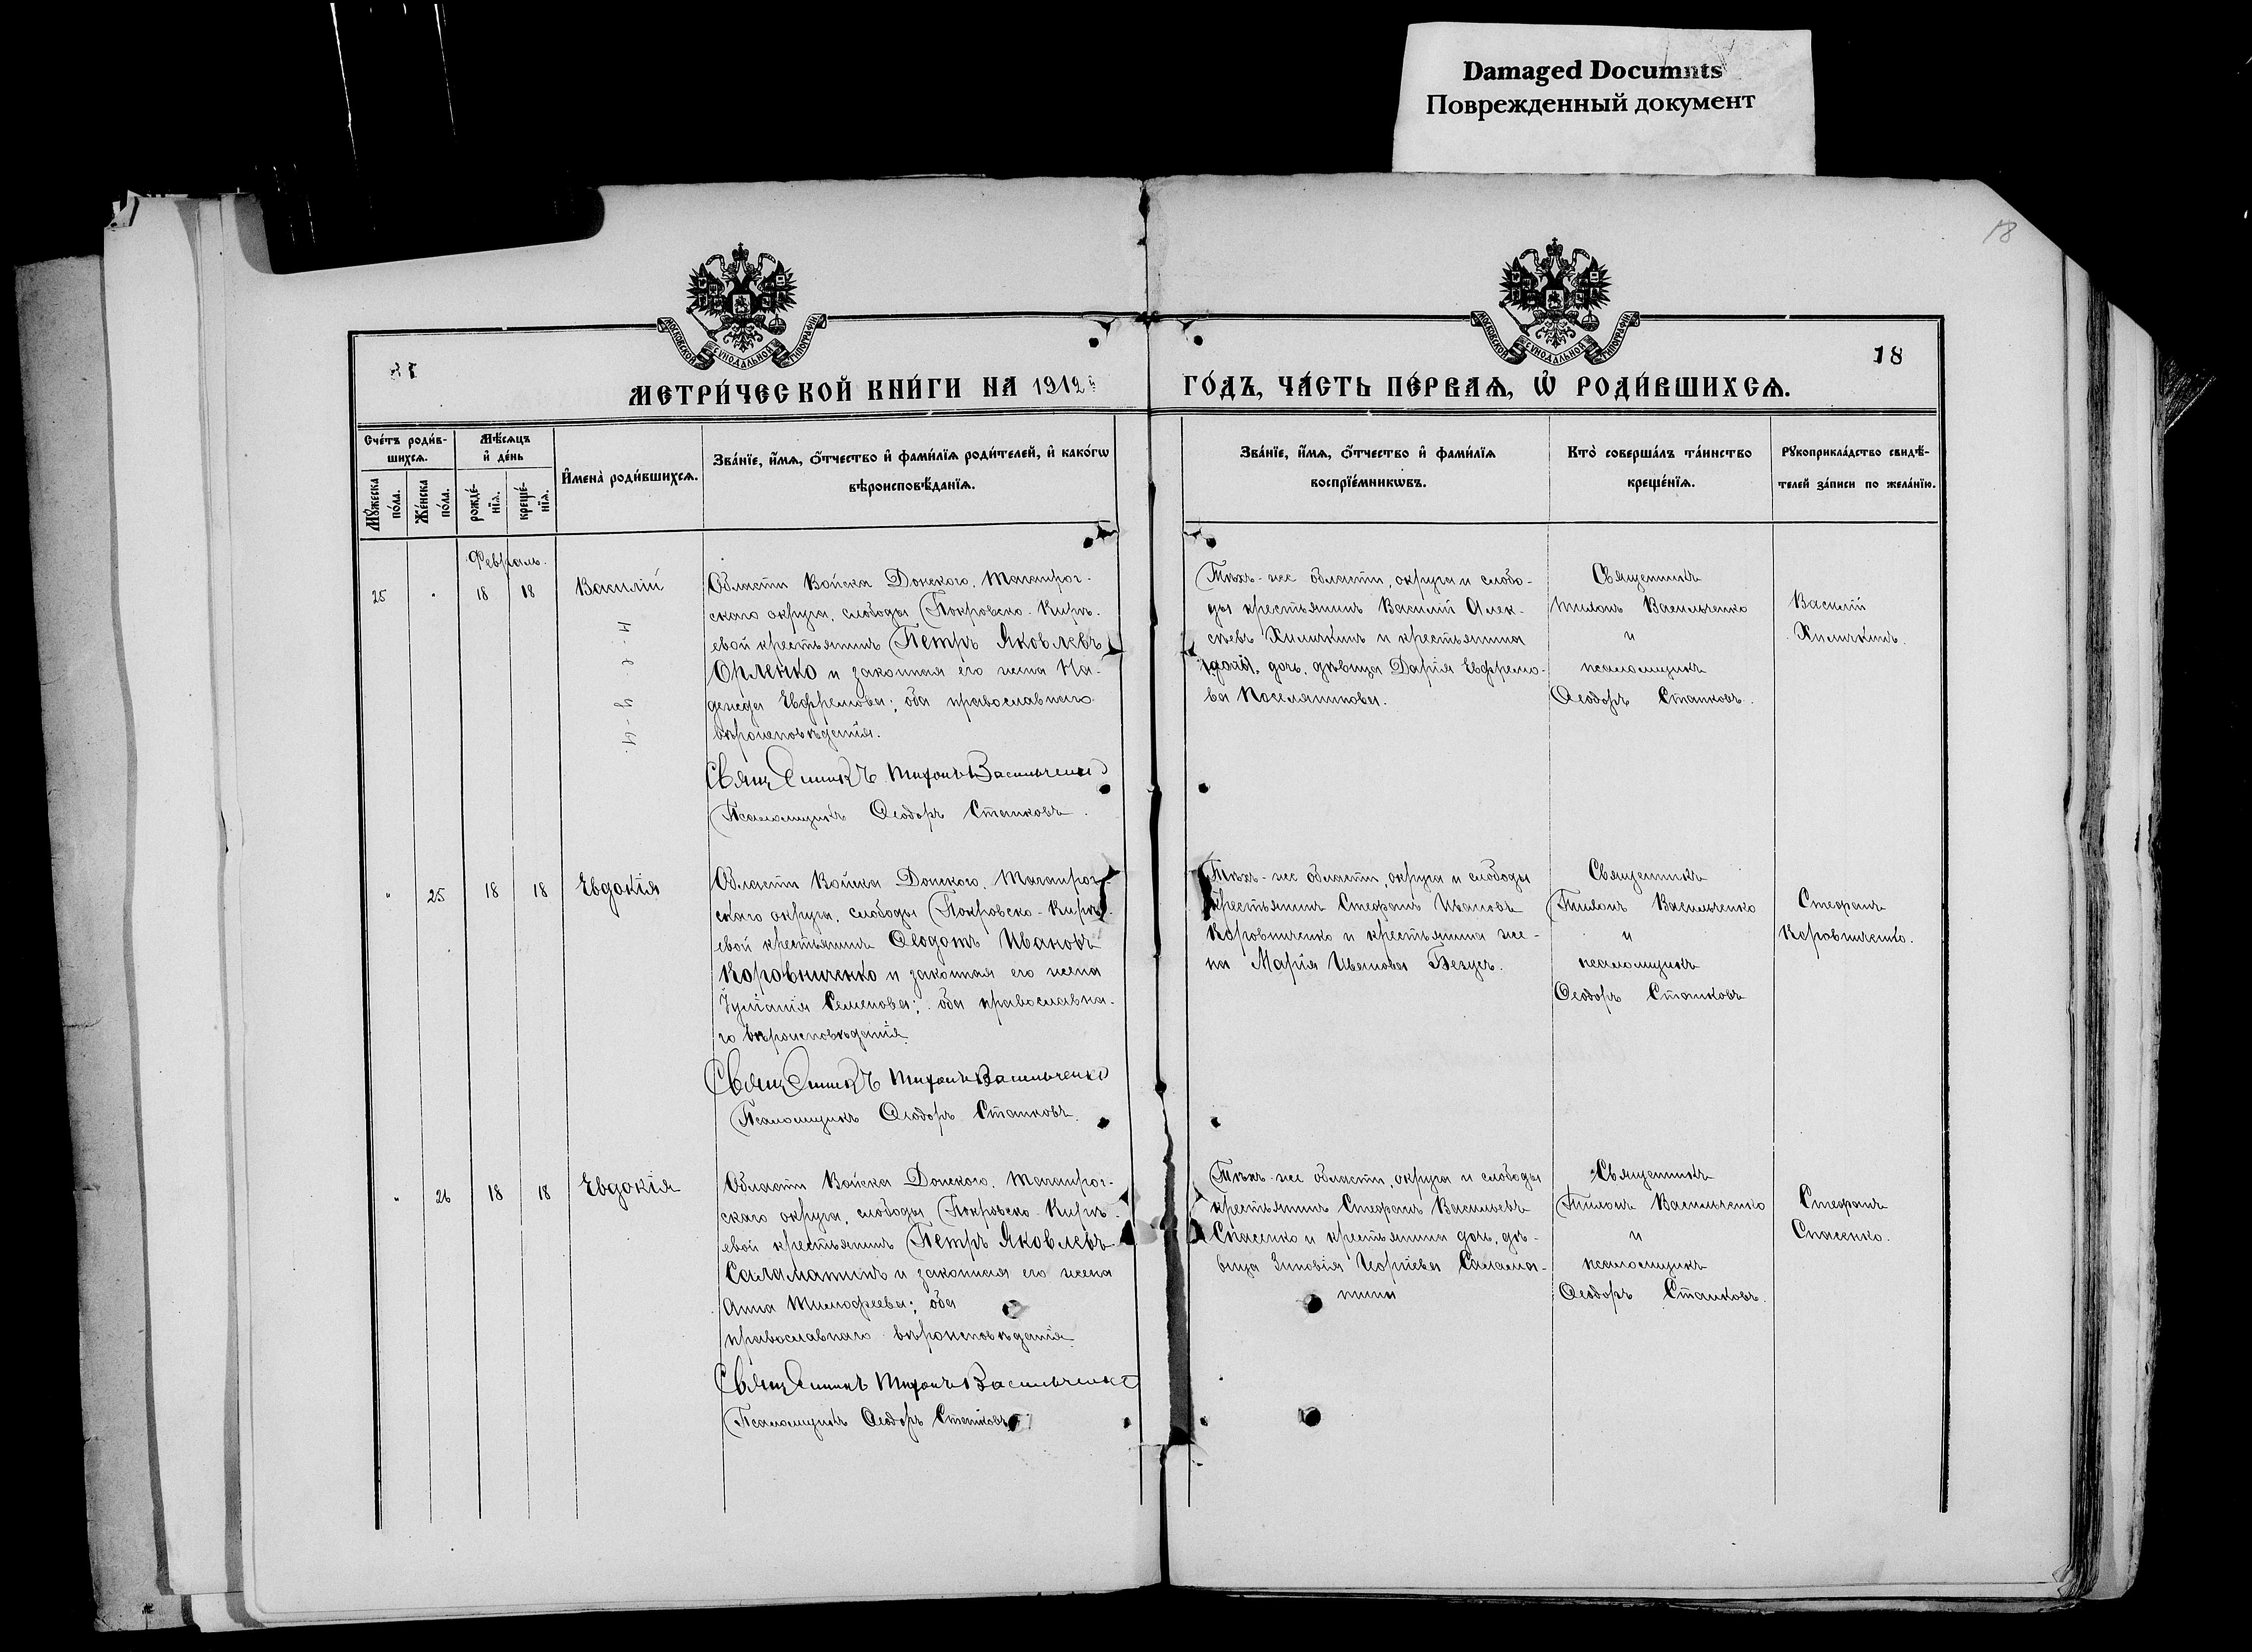 Damaged Documnts
Поврежденный документ
18
МОСКОВСКОЙ СѴНОДАЛЬНОЙ ТИПОГРАФІИ
МОСКОВСКОЙ СѴНОДАЛЬНОЙ ТИПОГРАФІИ
18
МЕТРИ́ЧЕСКОЙ КНИ́ГИ НА 1912
ГО́ДЪ, ЧА́СТЬ ПЕ́РВАѦ, Ѡ҆ РОДИ́ВШИХСѦ.
Сче́тъ роди́в-
шихсѧ.
Мꙋ́жеска по́ла.
Же́нска по́ла.
Мѣ́сѧцъ
и҆ де́нь
рожде́-
нїѧ.
креще́-
нїѧ.
И҆мена̀ роди́вшихсѧ.
Зва́нїе, и҆́мѧ, ѻ҆́тчество и҆ фами́лїѧ роди́телей, и҆ како́гѡ
вѣроисповѣ́данїѧ.
Зва́нїе, и҆́мѧ, ѻ҆́тчество и҆ фами́лїѧ
воспрїе́мникѡвъ.
Кто̀ соверша́лъ та́инство
креще́нїѧ.
Рꙋкоприкла́дство свидѣ́-
телей за́писи по жела́нїю.
Февраль.
25 " 18 18 Василій
Области Войска Донского, Таганрог-
скаго округа, слободы Покровско-Кирѣ-
евой крестьянинъ Петръ Яковлевъ
Орленко и законная его жена На-
дежда Евфремова; оба православнаго
вѣроисповѣданія.
Священникъ Тихонъ Васильченко
Псаломщикъ Ѳеодоръ Станковъ.
Тѣхъ-же области, округа и слобо-
ды крестьянинъ Василій Алек-
сѣевъ Хиличкинъ и крестьянина
дочь, дѣвица Дарія Евфремо-
ва Поселянинова.
Священникъ
Тихонъ Васильченко
и
псаломщикъ
Ѳеодоръ Станковъ.
Василій
Хиличкинъ.
" 25 18 18 Евдокія
Области Войска Донского, Таганрог-
скаго округа, слободы Покровско-Кирѣ-
евой крестьянинъ Ѳеодотъ Ивановъ
Коровниченко и законная его жена
Іуліанія Семенова; оба православна-
го вѣроисповѣданія.
Священникъ Тихонъ Васильченко
Псаломщикъ Ѳеодоръ Станковъ.
Тѣхъ-же области, округа и слободы
крестьянинъ Стефанъ Ивановъ
Коровниченко и крестьянина же-
на Марія Иванова Безусъ.
Священникъ
Тихонъ Васильченко
и
псаломщикъ
Ѳеодоръ Станковъ
Стефанъ
Коровниченко.
" 26 18 18 Евдокія
Области Войска Донского, Таганрог-
скаго округа, слободы Покровско-Кирѣ-
евой крестьянинъ Петръ Яковлевъ
Саламатинъ и законная его жена
Анна Тимофеева; оба
православнаго вѣроисповѣданія.
Священникъ Тихонъ Васильченко
Псаломщикъ Ѳеодоръ Станковъ
Тѣхъ-же области, округа и слободы
крестьянинъ Стефанъ Васильевъ
Спасенко и крестьянина дочь, дѣ-
вица Зиновія Саламa-
тина
Священникъ
Тихонъ Васильченко
и
псаломщикъ
Ѳеодоръ Станковъ.
Стефанъ
Спасенко.